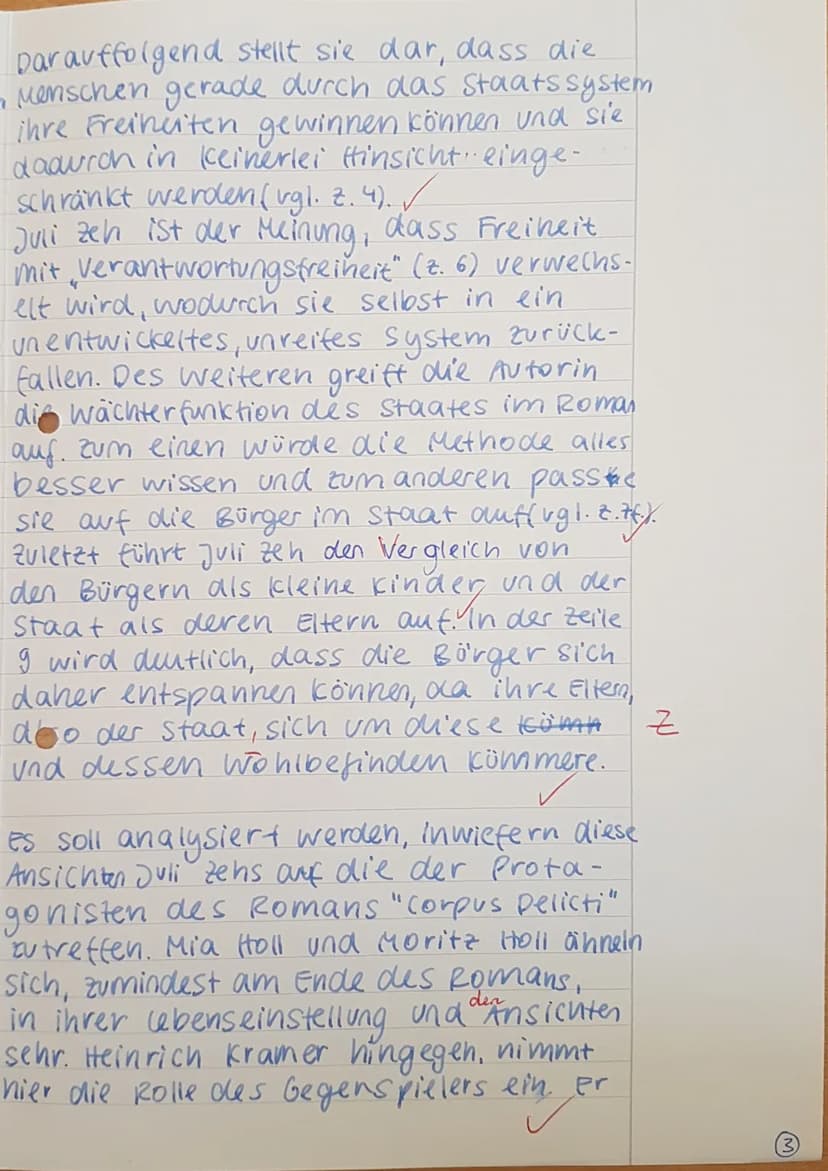 Darauffolgend stellt sie dar, dass die
Menschen gerade durch das Staatssystem
ihre Freiheiten gewinnen können und sie
dadurch in keinerlei Hinsicht einge-
schränkt werden (vgl. Z. 4). ✓
Juli Zeh ist der Meinung, dass Freiheit
mit „Verantwortungsfreiheit" (Z. 6) verwechs-
elt wird, wodurch sie selbst in ein
unentwickeltes, unreifes System zurück-
fallen. Des Weiteren greift die Autorin
die Wächterfunktion des Staates im Roman
auf. Zum einen würde die Methode alles
besser wissen und zum anderen passe
sie auf die Bürger im Staat auf (vgl. Z. 7f.). ✓
Zuletzt führt Juli Zeh den Vergleich von
den Bürgern als kleine Kinder und der
Staat als deren Eltern auf. ✓ In der Zeile
9 wird deutlich, dass die Bürger sich
daher entspannen können, da ihre Eltern,
also der Staat, sich um diese Z
und dessen Wohlbefinden kümmere.
✓
Es soll analysiert werden, inwiefern diese
Ansichten Juli Zehs auf die der Prota-
gonisten des Romans "Corpus Delicti"
zutreffen. Mia Holl und Moritz Holl ähneln
sich, zumindest am Ende des Romans,
in ihrer Lebenseinstellung und den Ansichten
sehr. Heinrich Kramer hingegen, nimmt
hier die Rolle des Gegenspielers ein. Er
✓
3